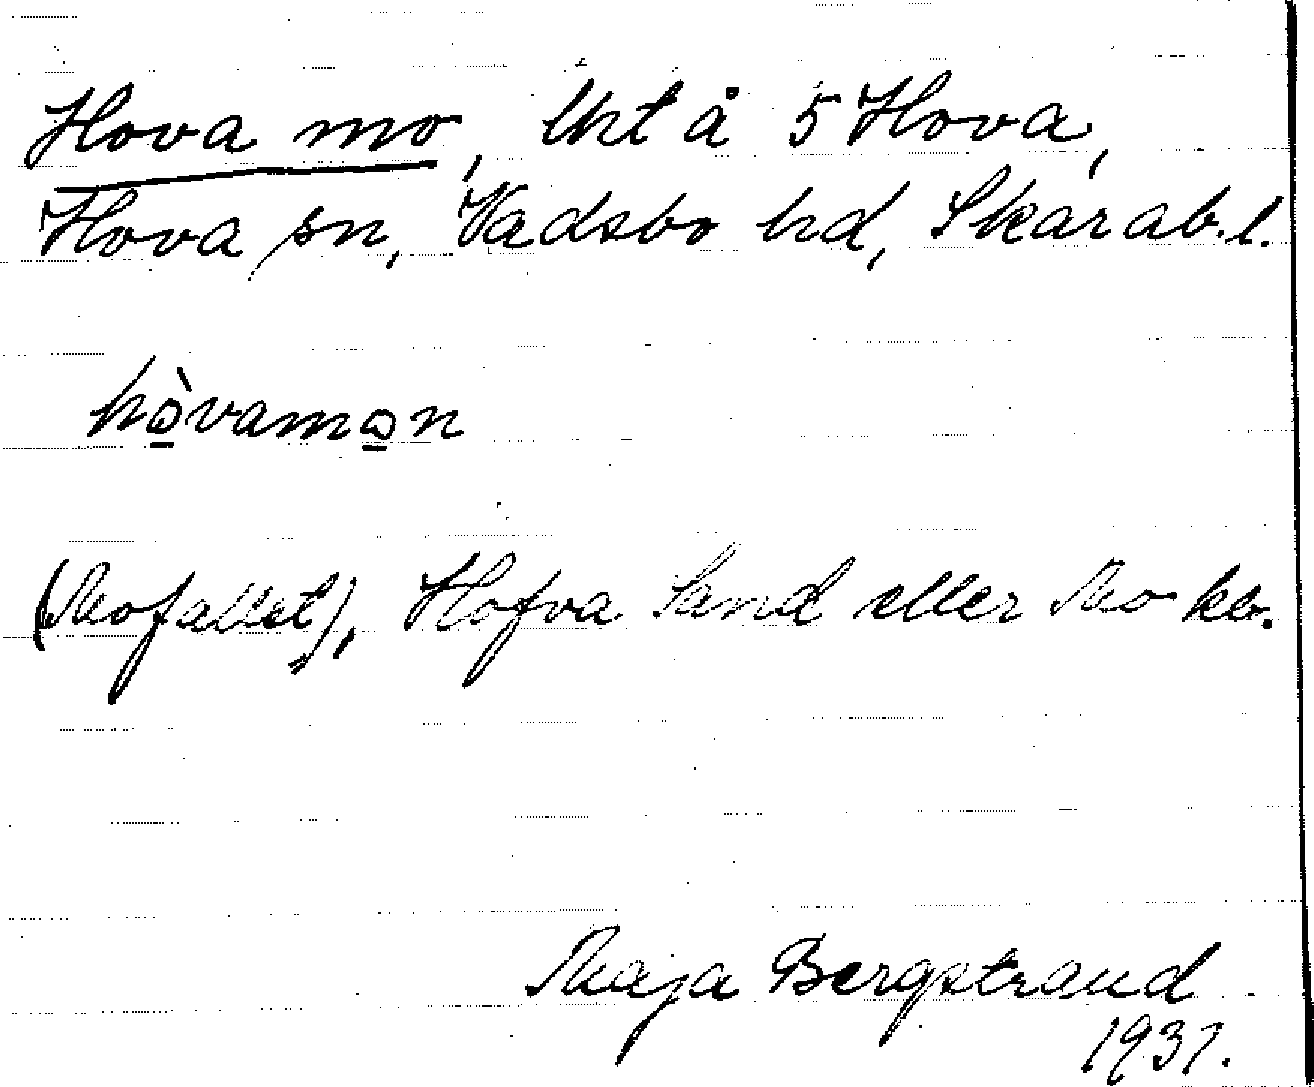 Hova mo, Uht å 5 Hova,
Hova sn, Vadsbo hd, Skarab.l.
hò̲vamo̲n
(Mofallet), Hofva Sand eller Mo kb.
Maja Bergstrand
1931.